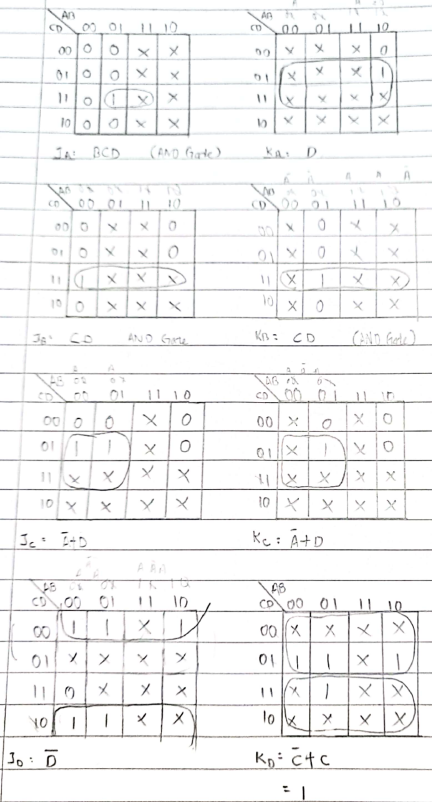 AB AB
CD 00 01 11 10 CD 00 01 11 10
00 0 0 x x 00 x x x 0
01 0 0 x x 01 x x x 1
11 0 1 x x 11 x x x x
10 0 0 x x 10 x x x x
JA: BCD (AND Gate) KA: D
AB AB
CD 00 01 11 10 CD 00 01 11 10
00 0 x x 0 00 x 0 x x
01 0 x x 0 01 x 0 x x
11 1 x x x 11 x 1 x x
10 0 x x x 10 x 0 x x
JB: CD AND Gate KB: CD (AND Gate)
AB AB
CD 00 01 11 10 CD 00 01 11 10
00 0 0 x 0 00 x 0 x 0
01 1 1 x 0 01 x 1 x 0
11 x x x x 11 x x x x
10 x x x x 10 x x x x
JC: Ī+D KC: Ā+D
AB AB
CD 00 01 11 10 CD 00 01 11 10
00 1 1 x 1 00 x x x x
01 x x x x 01 1 1 x 1
11 0 x x x 11 x 1 x x
10 1 1 x x 10 x x x x
JD: D̄ KD: C̄+C
= 1